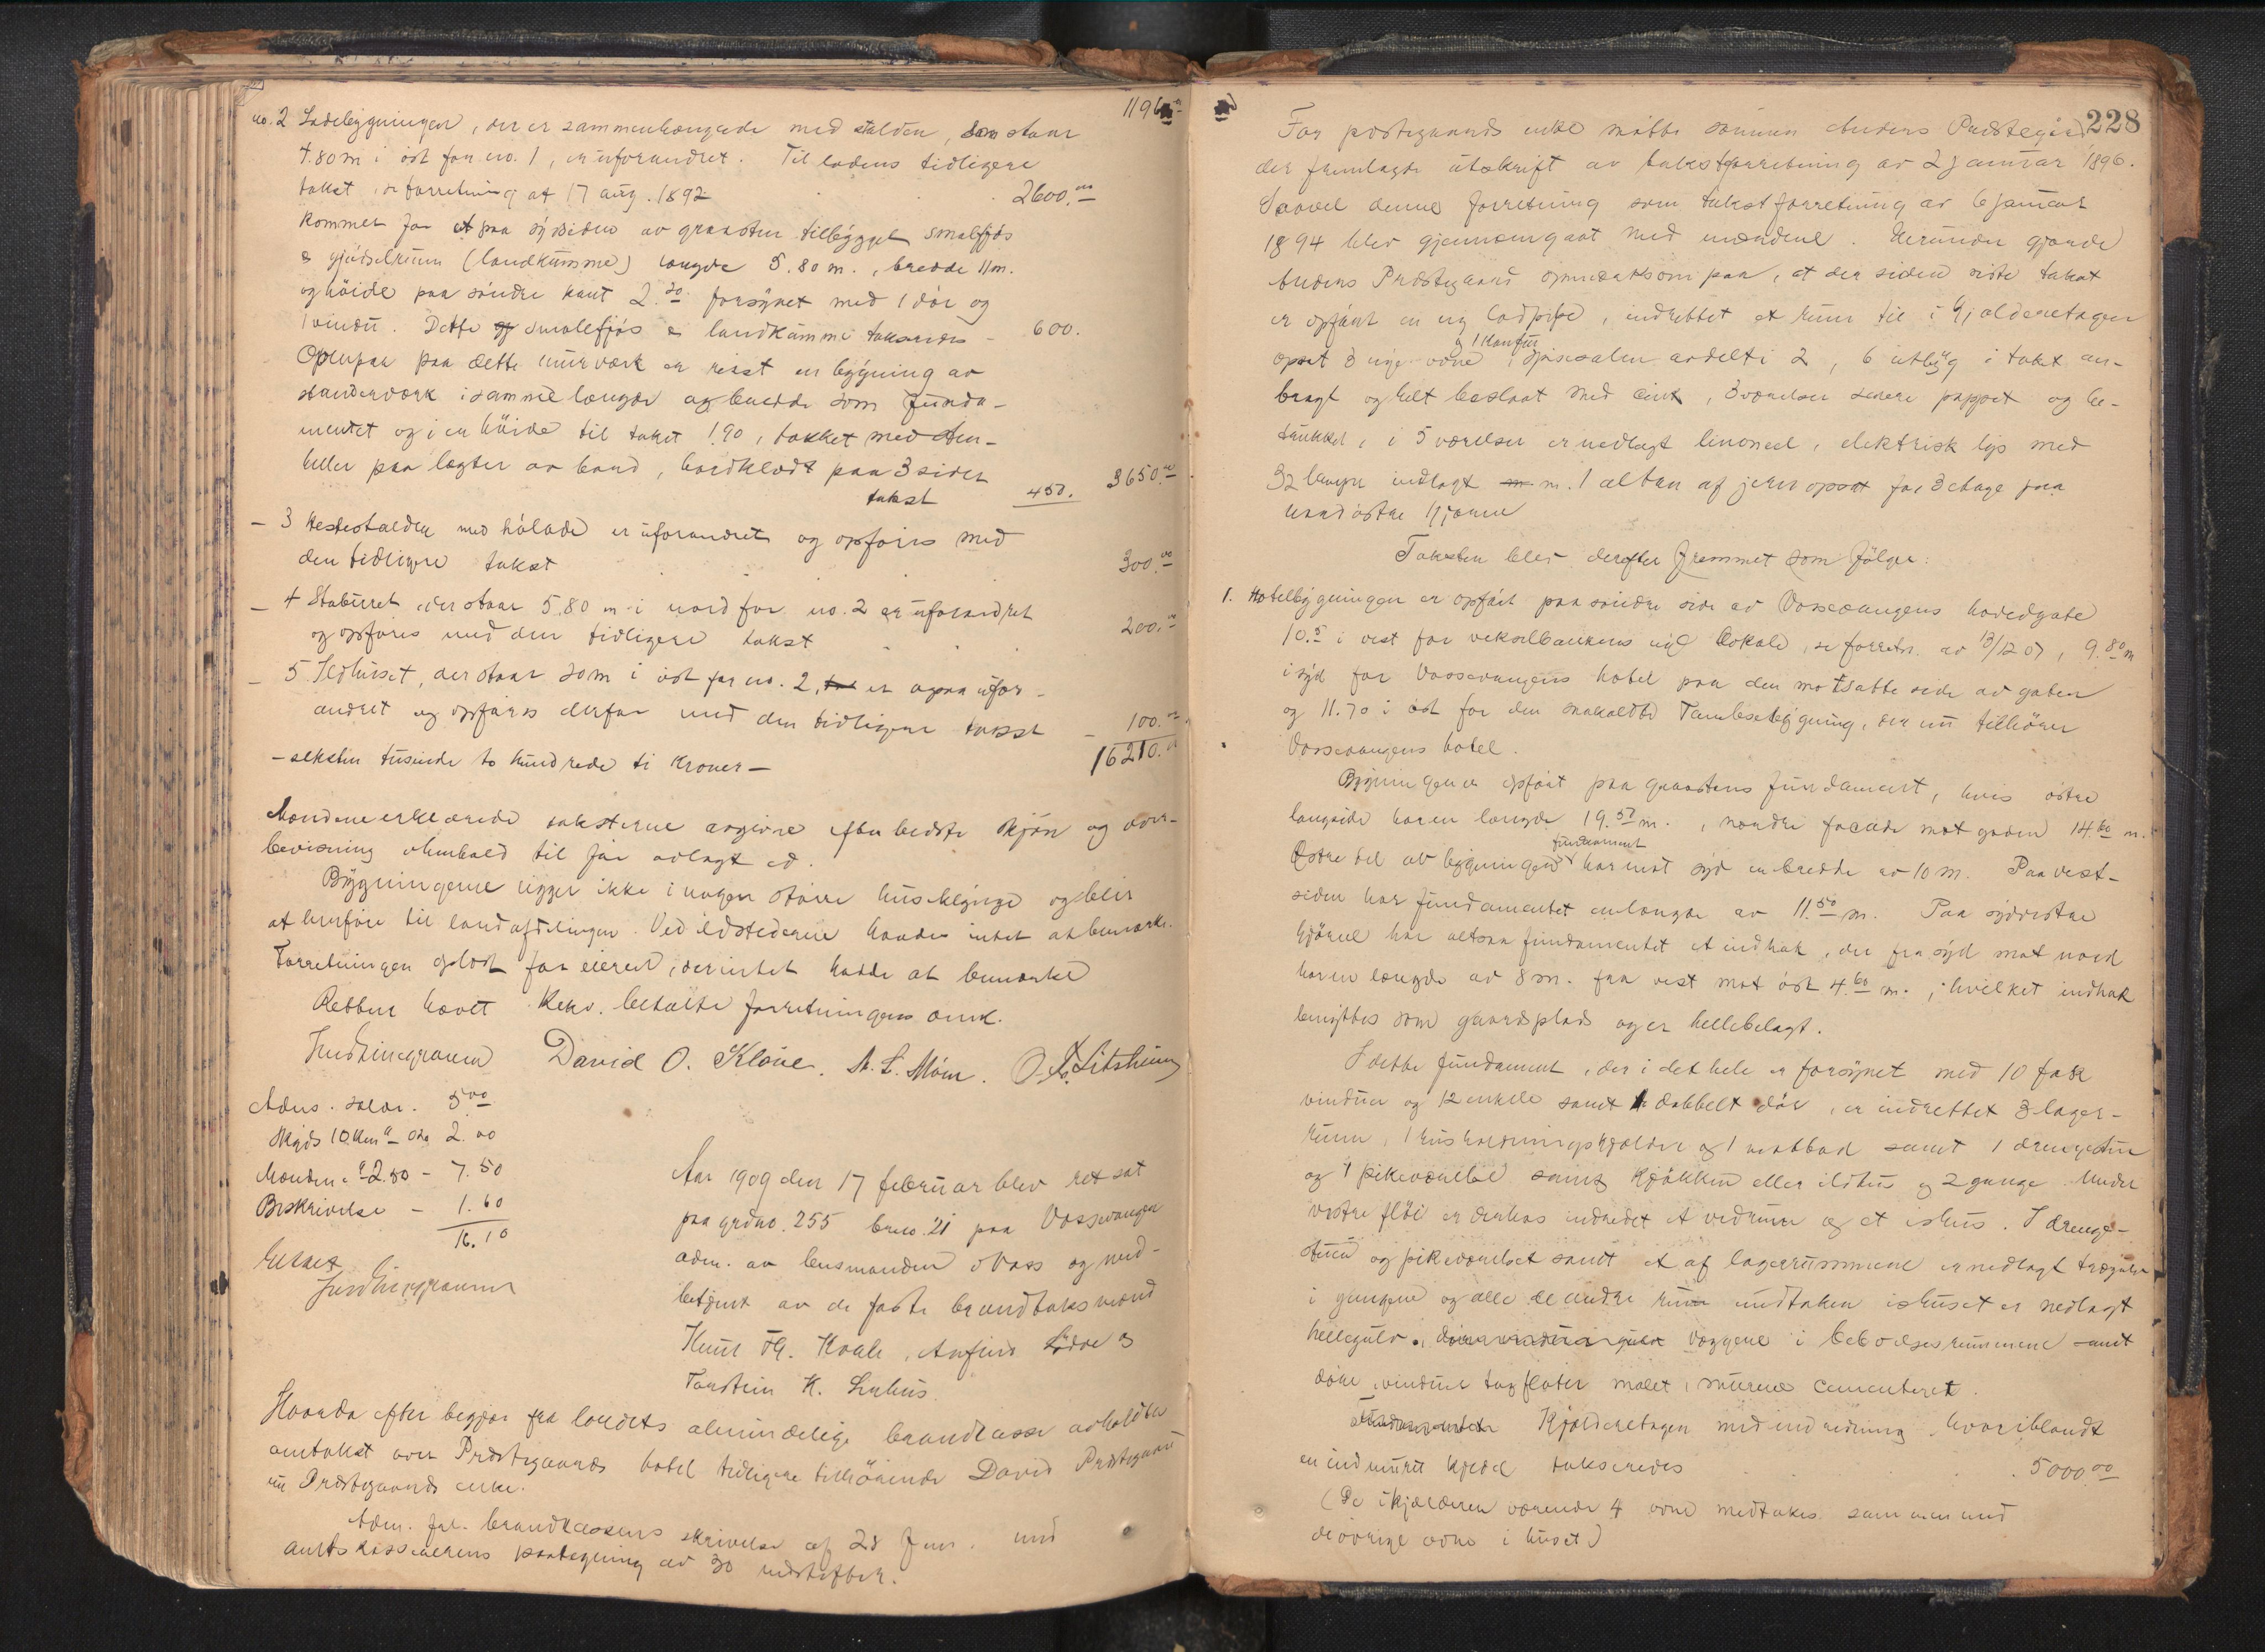 11960.00
no. 2 Ladebygningen, der er sammenhængende med stalden, som staar
4.80 m i øst for no. 1, er uforandret. Til ladens tidligere
takst, se forretning af 17 aug. 1892 2600.00
kommer for et paa sydsiden av graasten tilbygget smalefjøs
& gjødselrum (landkumme) længde 5.80 m., bredde 11 m.
og høide paa søndre kant 2.20 forsynet med 1 dør og
1 vindu. Dette smalefjøs & landkumme takseredes - 600.
Ovenpaa paa dette murværk er reist en bygning av
standerværk i samme længde og bredde som funda-
mentet og i en høide til taket 1.90, tækket med sten-
heller paa lægter av bord, bordklædt paa 3 sider
takst 450. 3650.00
- 3 Hestestalden med hølade er uforandret og opføres med
den tidligere takst 300.00
- 4 Staburet, der staar 5.80 m i nord for no. 2 er uforandret
og opføres med den tidligere takst 200.00
- 5 Ildhuset, der staar 20 m i øst for no. 2, er ogsaa ufor-
andret og opføres derfor med den tidligere takst - 100.00
- seksten tusinde to hundrede ti kroner - 16210.00
Mændene erklærede taksterne avgivne efter bedste skjøn og over-
bevisning i henhold til før avlagt ed.
Bygningerne ligger ikke i nogen større husklynge og blir
at henføre til landafdelingen. Ved ildstederne havdes intet at bemerke.
Forretningen oplæst for eieren, der intet hadde at bemerke
Retten hævet. Rekv. betalte forretningens omk.
David O. Kløve. A. L. Møen. O. K. Litsheim
Adms. salær. 5.00
Skyds 10 km 2.00
Mændene à 2.50 - 7.50
Beskrivelse - 1.60
16.10
Aar 1909 den 17 februar blev ret sat
paa grdno. 255 brno. 21 paa Vossevangen
adm. av lensmanden i Voss og med-
betjent av de faste brandtaksmænd
Knut Th. Kvale, Anfind Lødve &
Torstein K. Lirhus.
Hvorda efter begjær fra landets almindelige brandkasse avholdtes
omtakst over Præstegaards hotel tidligere tilhørende David Præstegaard
nu Præstegaards enke.
Adm. frl. brandkassens skrivelse af 28 jan. med
amtskassererens paategning av 30 næstefter.
228
For præstegaards enke møtte sønnen Anders Præstegård,
der fremlagde utskrift av takstforretning av 2 januar 1896.
Saavel denne forretning som takstforretning av 6 januar
1894 blev gjennemgaat med mændene. Herunder gjorde
Anders Præstegaard opmerksom paa, at der siden siste takst
er opført en ny ladpipe, indrettet et rum til i kjælderetagen
& 1 kontur
opsat 3 nye ovne, spisesalen avdelt i 2, 6 utbyg i taket an-
bragt og helt beslaat med cink, 3 værelser senere pappet og be-
trukket, i 5 værelser er nedlagt linoneel, elektrisk lys med
32 lamper indlagt m. m. 1 altan af jern opsat for 3 etage paa
nordøstre hjørne
Taksten blev derefter fremmet som følger:
1. Hotelbygningen er opført paa søndre side av Vossevangens hovedgate
10.5 i vest for vekselbankens nye lokale, se forretn. av 13/12 07, 9.80 m
i syd for Vossevangens hotel paa den motsatte side av gaten
og 11.70 i øst for den saakaldte bygning, der nu tilhører
Vossevangens hotel.
Bygningen er opført paa graastens fundament, hvis østre
langside har en længde 19.50 m., nordre facade mot gaden 14.60 m.
fundament
Østre del av bygningens har mot syd en bredde av 10 m. Paa vest-
siden har fundamentet en længde av 11.50 m. Paa sydvestre
hjørne har altsaa fundamentet et indhak, der fra syd mot nord
har en længde av 8 m. fra vest mot øst 4.60 m., hvilket indhak
benyttes som gaardsplads og er hellebelagt.
I dette fundament, der i det hele er forsynet med 10 fask
vinduer og 12 enkle samt 1 dobbelt dør, er indrettet 3 lager-
rum, 1 husholdningskjælder og 1 matbod samt 1 drengestue
og 1 pikeværelse samt kjøkken eller ildhus og 2 gange. Under
vestre fløi er derhos indredet et vedrum og et ishus. I drenge-
stuen og pikeværelset samt et af lagerrummene er nedlagt trægulv
i gangene og alle de andre rum undtaken ishuset er nedlagt
hellegulv. væggene i beboelsesrummene samt
døre, vinduer tagflater malet, murene cementeret.
Kjælderetagen med indredning hvoriblandt
en indmuret kjedel takseredes 5000.00
(De i kjælderen værende 4 ovne medtakes sammen med
de øvrige ovne i huset)